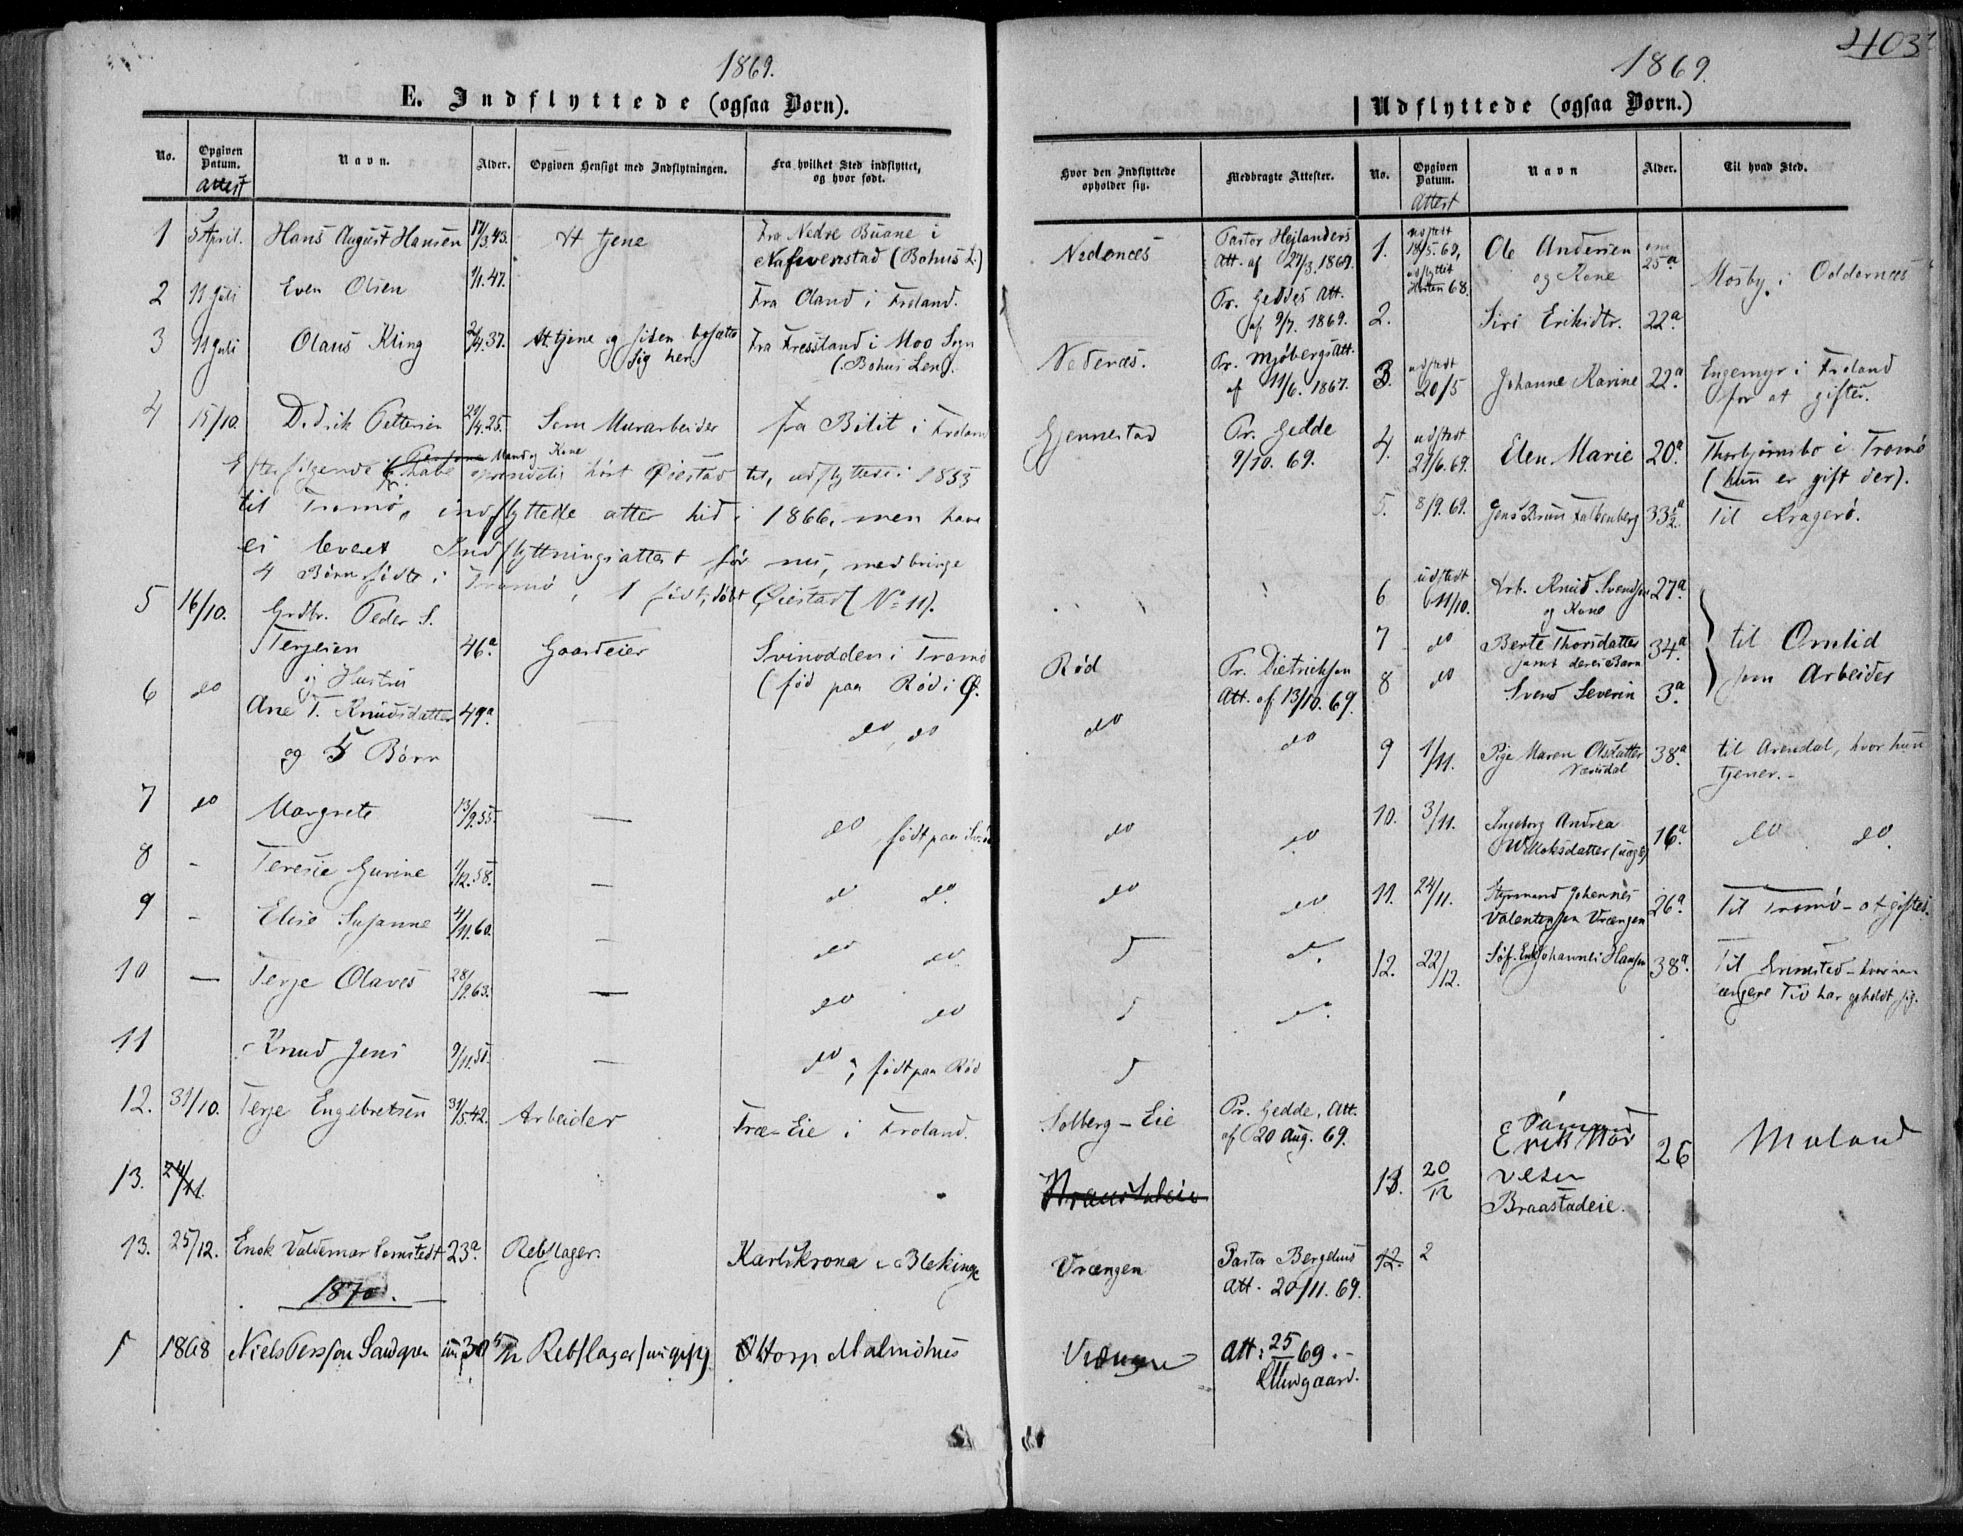 403
1869.
E. Indflyttede (ogsaa Børn).
No.
Opgiven Datum.
Attest
Navn.
Alder.
Opgiven Hensigt med Indflytningen.
Fra hvilket Sted indflyttet, og hvor født.
Hvor den Indflyttede opholder sig.
Medbragte Attester.
1 5 April. Hans August Hansen 17/3.43. At tjene Fra Nedre Buane i
Nafverstad (Bohus L.)
Nedenæs Pastor Hejlanders
Att. af 27/3. 1869.
2 11 Juli Even Olsen 1/1.47. Fra Oland i Froland.
Pr. Geddes Att.
af 9/7. 1869.
3 11 Juli Olaus Kling 2/4.37. At tjene og siden bosætte
sig her.
Fra Fressland i Moo Sogn
(Bohus Len).
Nedenæs. Pr. Mjöbergs Att.
af 11/6. 1867.
4 15/10. Didrik Pettersen 29/4.25. Som Murarbeider fra Bilit i Froland
Gjennestad Pr. Gedde
9/10. 69.
Efterfølgende Mand og Kone
have oprindelig hørt Øiestad til, udflyttede i 1853
til Tromø, indflyttede atter hid i 1866, men have
ei leveret Indflyttningsattest før nu, medbringe
4 Børn fødte i Tromø, 1 født, døbt Øiestad (No 11).
5 16/10. Grdbr. Peder S.
Terjesen 46a Gaardeier Svinodden i Tromø
(fød paa Rød i Ø.
Rød Pr. Dietrichson
Att. af 13/10. 69.
og Hustru
6 do Ane T. Knudsdatter 49a. — do, do do do
og 5 Børn
7 do Margrete 13/9.55. — do født paa do do
8 - Teresie Gurine 1/12.58. — do do. do do
9 - Elise Susanne 4/11.60. — do do
10 — Terje Olaves 28/9.63. — do do
11 Knud Jens 9/11. — do, født paa Rød
12. 31/10. Terje Engebretsen 31/5.42. Arbeider Træ-Eie i Froland.
Solberg-Eie Pr. Gedde, Att.
af 20 Aug. 69.
13. 24/11.
13. 25/12. Enok Valdemar 23a. Rebslager. Karlskrona i Blekinge
Vrængen Pastor Bergelius
Att. 20/11. 69.
1870.
1 1868 Niels Persson Sandgren 30 Rebslager/ugift Malmöhus
Att: 25/11 69.-
1869.
Udflyttede (ogsaa Børn.)
No.
Opgiven Datum.
Attest
Navn
Alder.
Til hvad Sted.
1. udstedt
18/5.69,
udflyttet
Høsten 68.
Ole Andersen
og Kone
om
25a
Mosby i Oddernæs
2. Siri Eriksdtr. 22a.
3. udstedt
20/5 Johanne Karine 22a. Engemyr i Froland
for at giftes.
4. udstedt
27/6.69. Elen Marie 20a. Thorbjørnsbo i Tromø
(hun er gift der).
5. 8/9. 69. Jens Bruun Falkenberg 33½a Til Kragerø.
6 udstedt
11/10. Arb. Knud Svendsen 27a.
og Kone
7 do Berte Thorsdatter 34a.
samt deres Barn
8 do Svend Severin 3a.
til Omlid
som Arbeider
9 1/11. Pige Maren Olsdatter 38a.
til Arendal, hvor hun
tjener.-
10. 3/11. Ingeborg Andrea
16a. do do.
11. 24/11. Styrmand Johannes
Valentinsen Vrængen 26a. Til Tromø - at giftes.
12. 22/12. Søf. Enk. Johannes Hansen 38a. Til Grimstad - hvor han
længere Tid har opholdt sig.
13. 20/12 Erik
Braastadeie. 26 Moland
12. 2